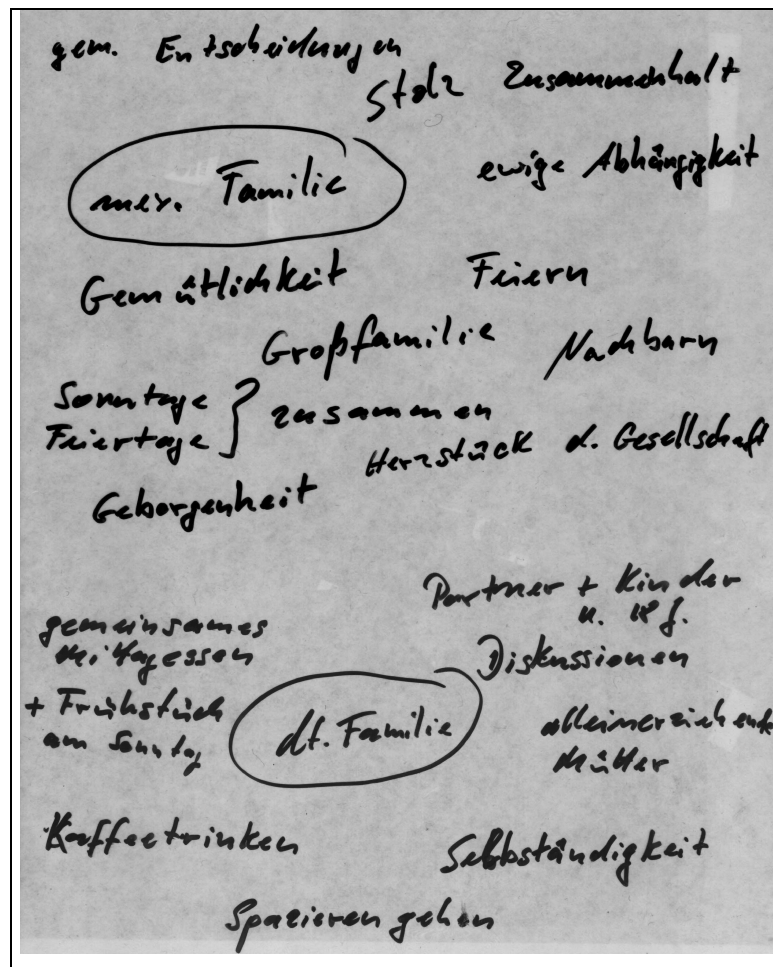 gem. Entscheidungen
Stolz Zusammenhalt
mex. Familie
ewige Abhängigkeit
Gemütlichkeit Feiern
Großfamilie Nachbarn
Sonntage } zusammen
Feiertage
Herzstück d. Gesellschaft
Geborgenheit
Partner + Kinder
u.
gemeinsames
Mittagessen
Diskussionen
+ Frühstück
am Sonntag
dt. Familie
alleinerziehende
Mütter
Kaffeetrinken
Selbständigkeit
Spazieren gehen